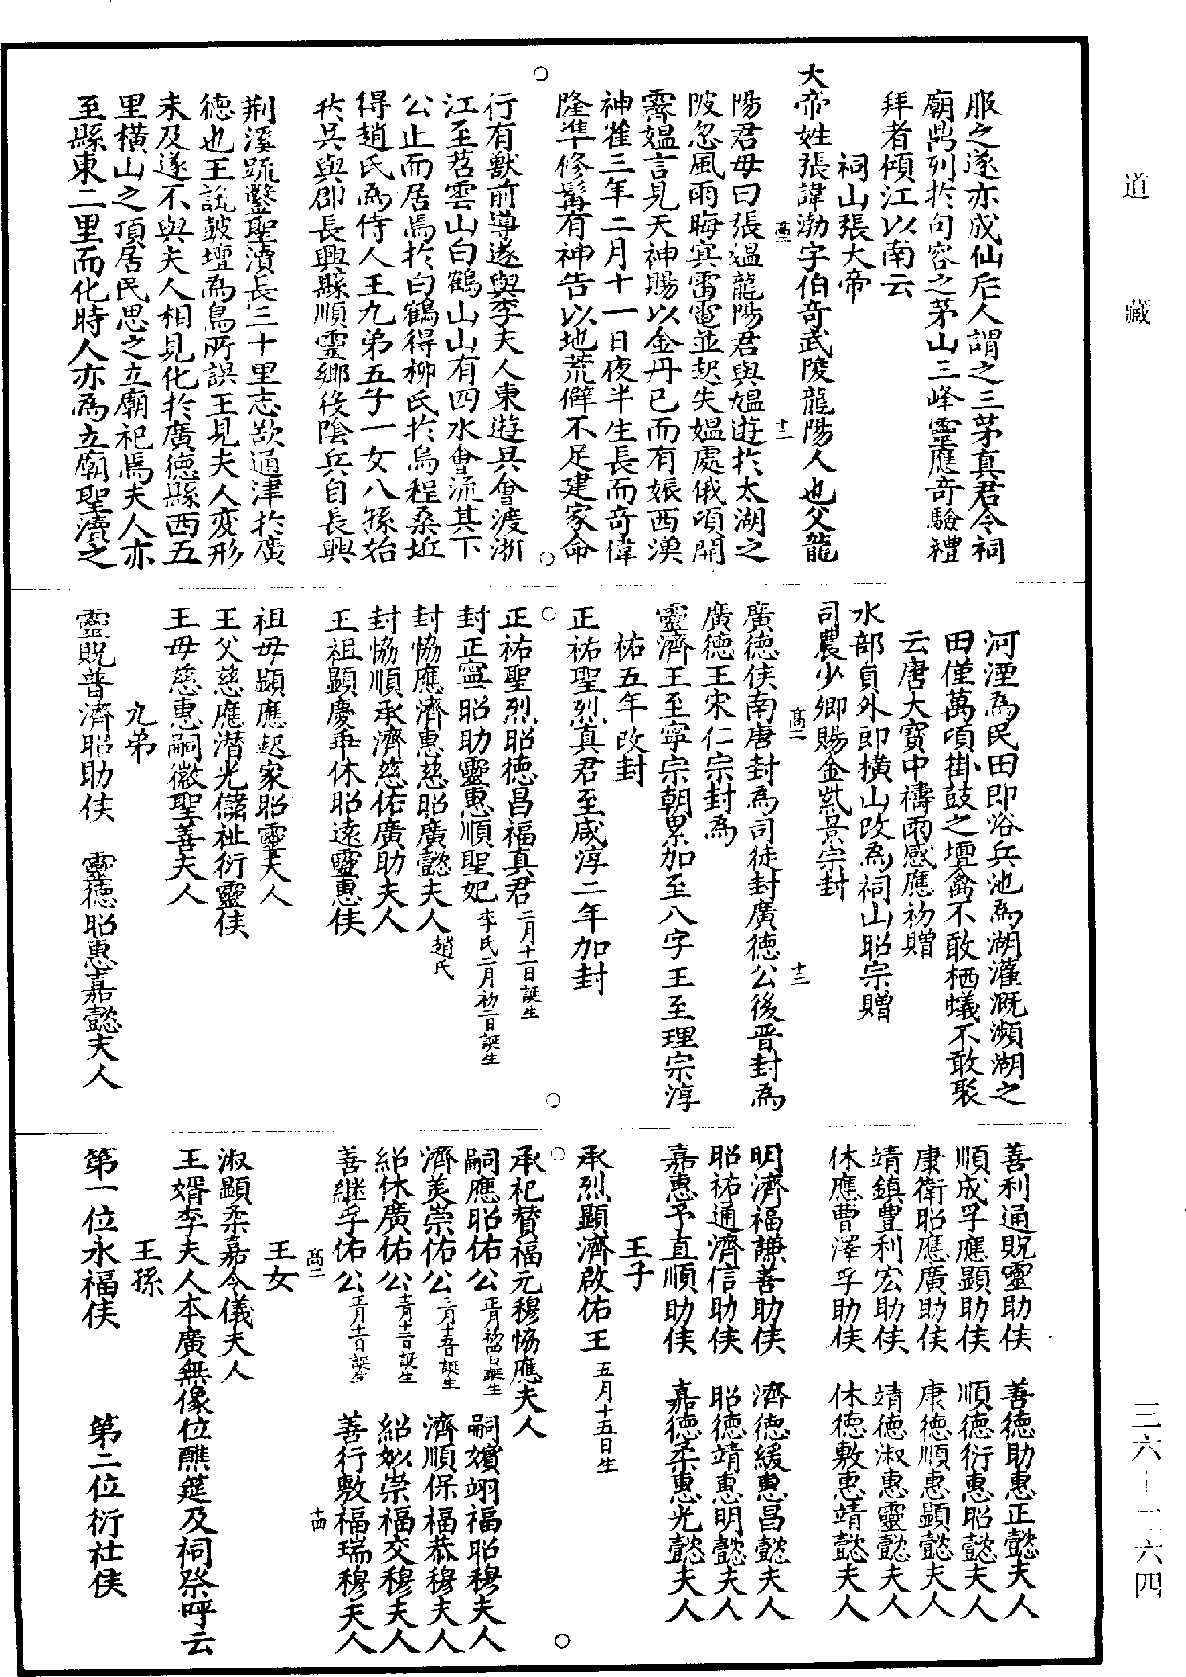 道藏
服之遂亦成仙后人謂之三茅真君今祠
廟鼎列於句容之茅山三峰靈應奇驗禮
拜者傾江以南云
祠山張大帝
大帝姓張諱渤字伯奇武陵龍陽人也父龍
高二
十二
陽君母曰張媪龍陽君與媪遊於太湖之
陂忽風雨晦冥雷電並起失媪處俄頃開
霽媪言見天神賜以金丹已而有娠西漢
神雀三年二月十一日夜半生長而奇偉
隆準修髯有神告以地荒僻不足建家命
行有獸前導遂與李夫人東遊吳會渡浙
江至苕雲山白鶴山山有四水會流其下
公止而居焉於白鶴得柳氏於烏程桑坵
得趙氏為侍人王九弟五子一女八孫始
於吳興郡長興縣順靈鄉役陰兵自長興
荆溪䟽鑿聖瀆長三十里志欲通津於廣
德也王詭皷壇為烏所誤王見夫人変形
未及遂不與夫人相見化於廣德縣西五
里橫山之頂居民思之立廟祀焉夫人亦
至縣東二里而化時人亦為立廟聖瀆之
河湮為民田即浴兵池為湖灌溉瀕湖之
田僅萬頃掛鼓之壇禽不敢栖蟻不敢聚
云唐天寶中禱雨感應初贈
水部員外郎橫山改為祠山昭宗贈
司農少卿賜金紫景宗封
高二
十三
廣德侯南唐封為司徒封廣德公後晉封為
廣德王宋仁宗封為
靈濟王至寧宗朝累加至八字王至理宗淳
祐五年改封
正祐聖烈真君至咸淳二年加封
正祐聖烈昭德昌福真君二月十一日誕生
封正寧昭助靈惠順聖妃李氏二月初二日誕生
封協應濟惠慈昭廣懿夫人趙氏
封協順承濟慈佑廣助夫人
王祖顯慶垂休昭遠靈惠侯
祖母顯應起家昭靈夫人
王父慈應潛光儲祉衍靈侯
王母慈惠嗣徽聖善夫人
九弟
靈貺普濟昭助侯 靈德昭惠嘉懿夫人
善利通貺靈助侯 善德助惠正懿夫人
順成孚應顯助侯 順德衍惠昭懿夫人
康衛昭應廣助侯 康德順惠顯懿夫人
靖鎮豊利宏助侯 靖德淑惠靈懿夫人
休應曹澤孚助侯 休德敷惠靖懿夫人
明濟福謙善助侯 濟德緩惠昌懿夫人
昭祐通濟信助侯 昭德靖惠明懿夫人
嘉惠予直順助侯 嘉德柔惠光懿夫人
王子
承烈顯濟啟佑王五月十五日生
承祀賛福元穆協應夫人
嗣應昭佑公 嗣嬪翊福昭穆夫人
濟美崇佑公 濟順保福恭穆夫人
紹休廣佑公 紹妣崇福交穆夫人
善継孚佑公 善行敷福瑞穆夫人
高二
十四
王女
淑顯柔嘉令儀夫人
王婿李夫人本廣無像位醮筵及祠祭呼云
王孫
第一位永福侯 第二位衍社侯
三六—二六四